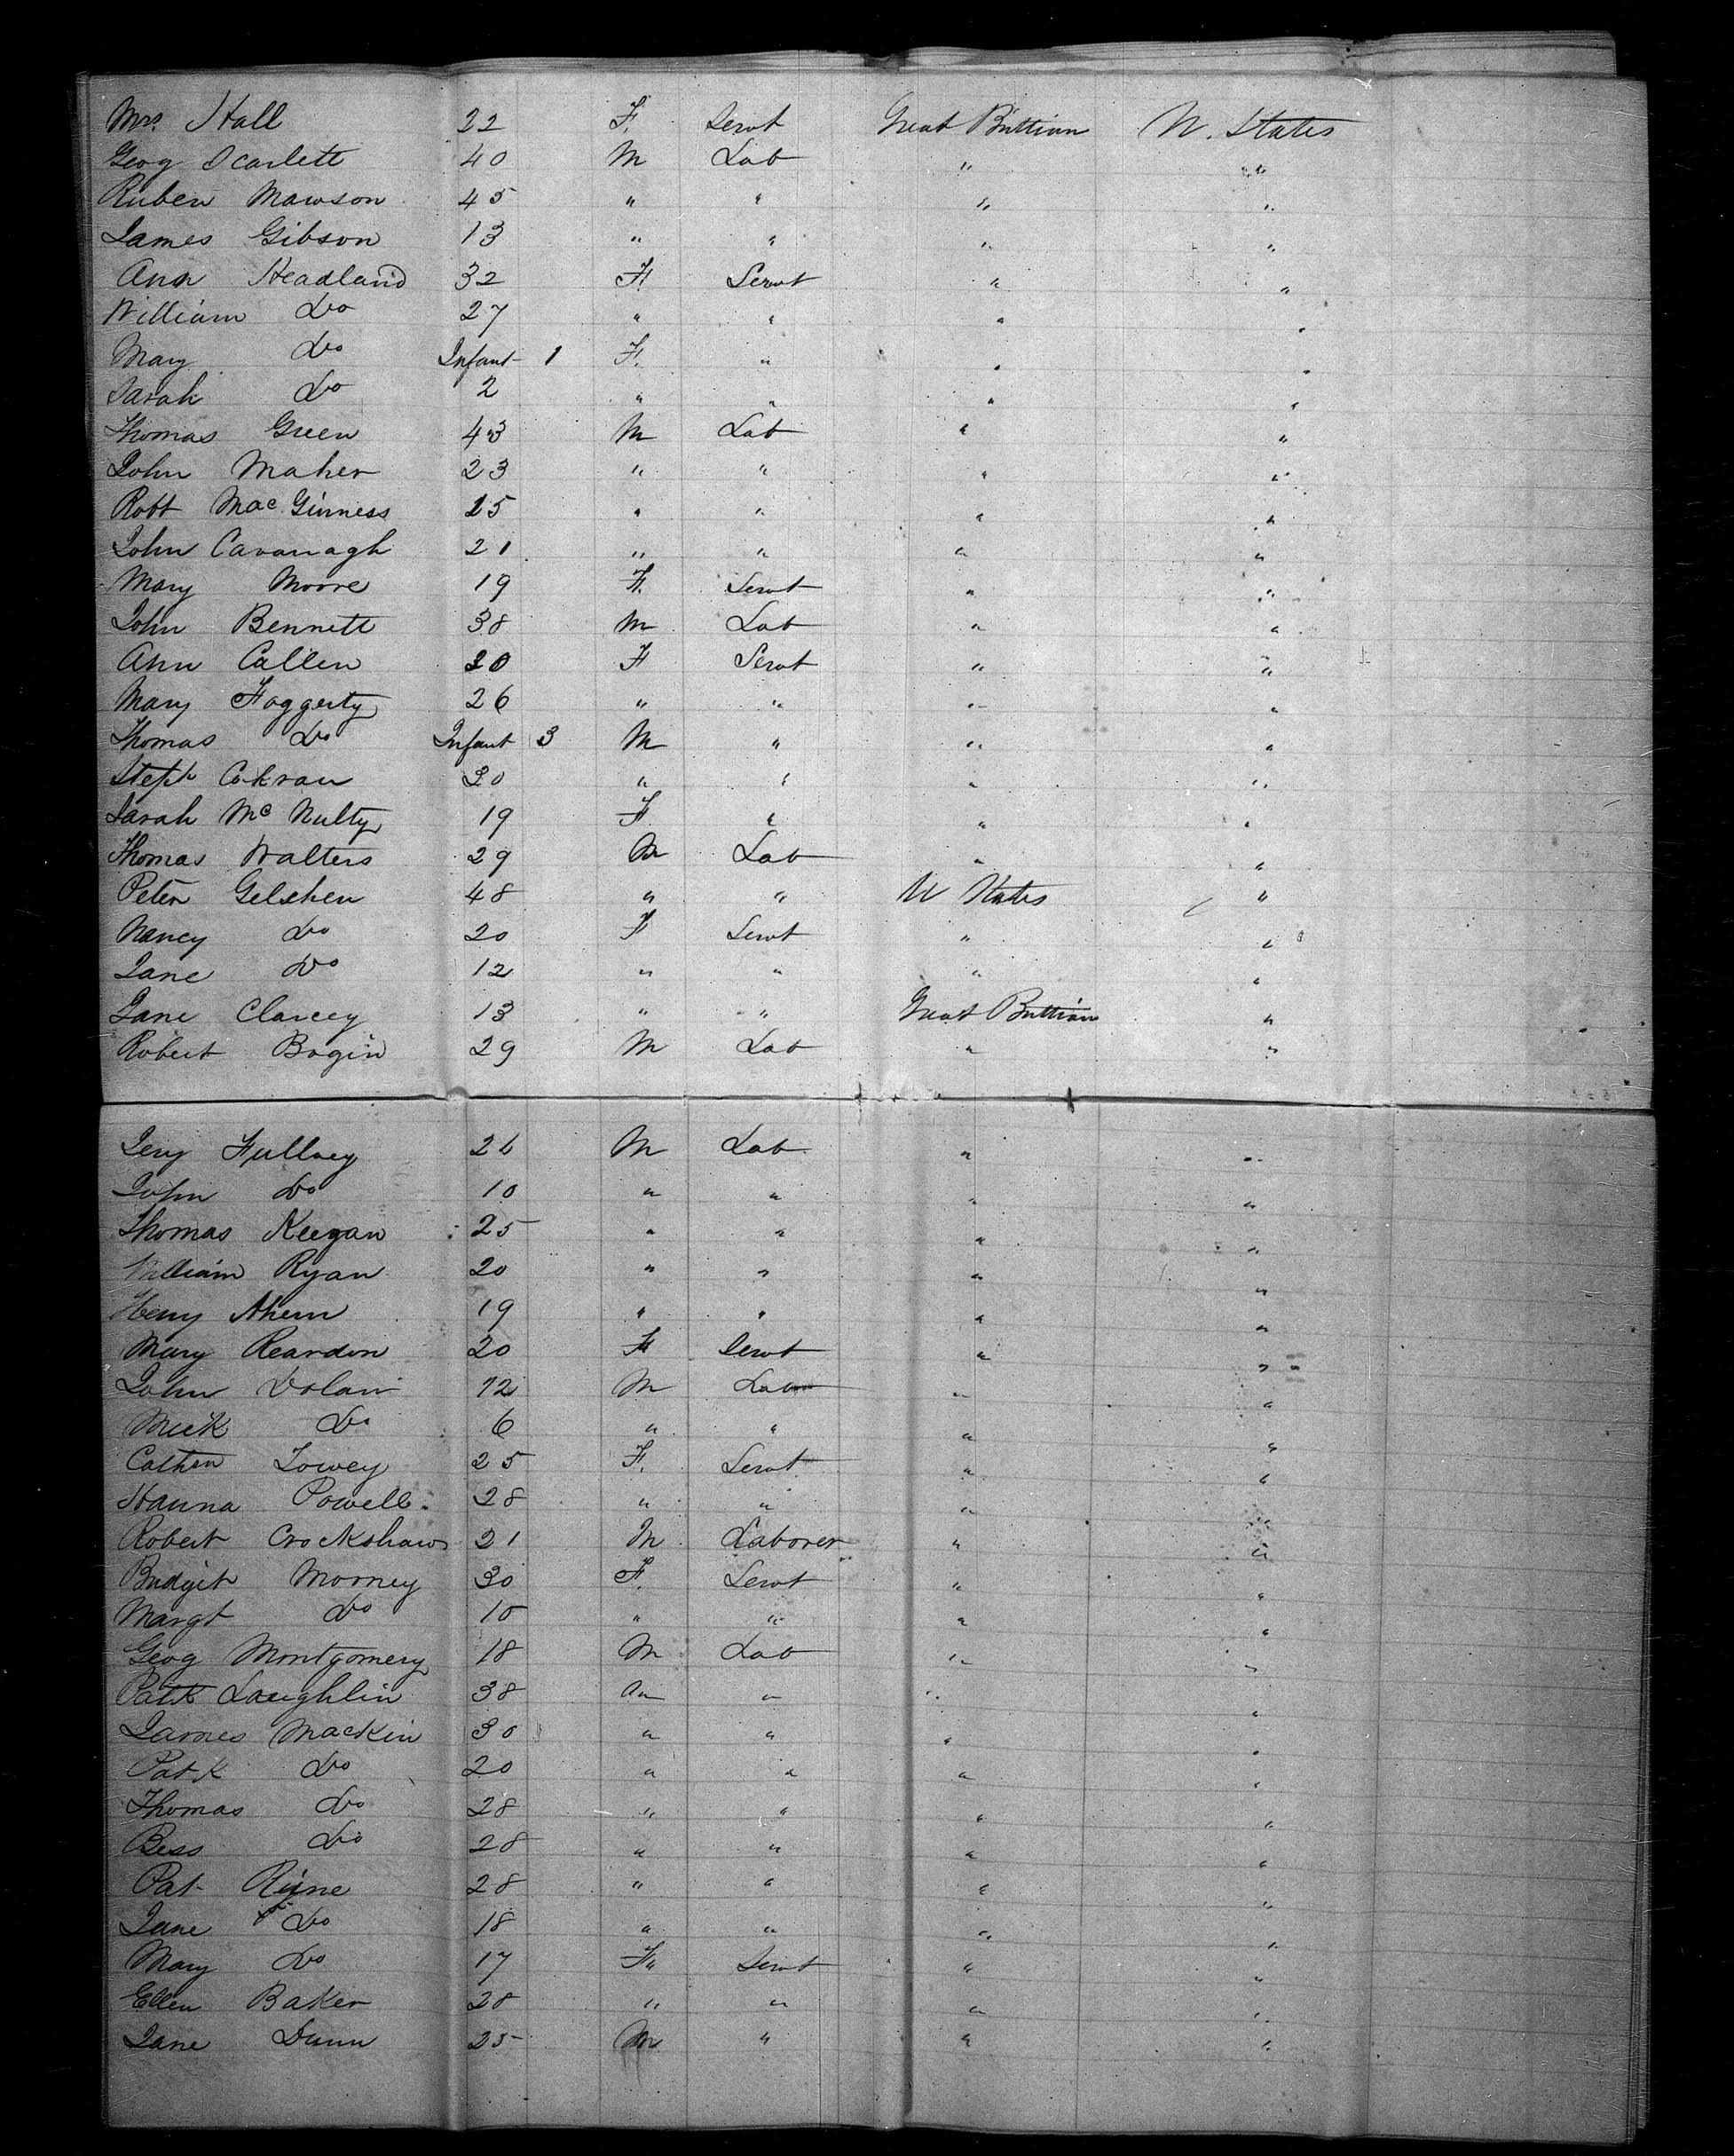 Mrs. Hall 22 F. Servt Great Brittian U. States
Geog Scarlett 40 M Lab " "
Ruben Mawson 45 " " " "
James Gibson 13 " " " "
Ann Headland 32 F. Servt " "
William Do 27 " " " "
Mary Do Infant 1 F. " " "
Sarah Do 2 " " " "
Thomas Green 43 M Lab " "
John Maher 23 " " " "
Robt MacGinness 25 " " " "
John Cavanagh 21 " " " "
Mary Moore 19 F. Servt " "
John Bennett 38 M Lab " "
Ann Callen 20 F Servt " "
Mary Foggerty 26 " " " "
Thomas Do Infant 3 M " " "
Steph Cokran 30 " " " "
Sarah McNulty 19 F " " "
Thomas Walters 29 M Lab " "
Peter Gelshen 48 " " U States "
Nancy Do 20 F Servt " "
Jane Do 12 " " " "
Jane Clancey 13 " " Great Brittian "
Robert Bogin 29 M Lab " "
Jery Fullvey 26 M Lab " "
John Do 10 " " " "
Thomas Keegan 25 " " " "
William Ryan 20 " " " "
Henry Ahern 19 " " " "
Mary Reardon 20 F Servt " "
John Dolan 12 M Lab " "
Mick Do 6 " " " "
Cathrn Towey 25 F. Servt " "
Hanna Powell 28 " " " "
Robert Crockshaw 21 M Laborer " "
Bridget Morney 30 F. Servt " "
Margt Do 10 " " " "
Geog Montgomery 18 M Lab " "
Patk Laughlin 38 " " " "
James Mackin 30 " " " "
Patk Do 20 " " " "
Thomas Do 28 " " " "
Bess Do 28 " " " "
Pat Ryne 28 " " " "
Jane Do 18 " " " "
Mary Do 17 F " Servt " "
Ellen Baker 28 " " " "
Jane Dunn 25 M " " "